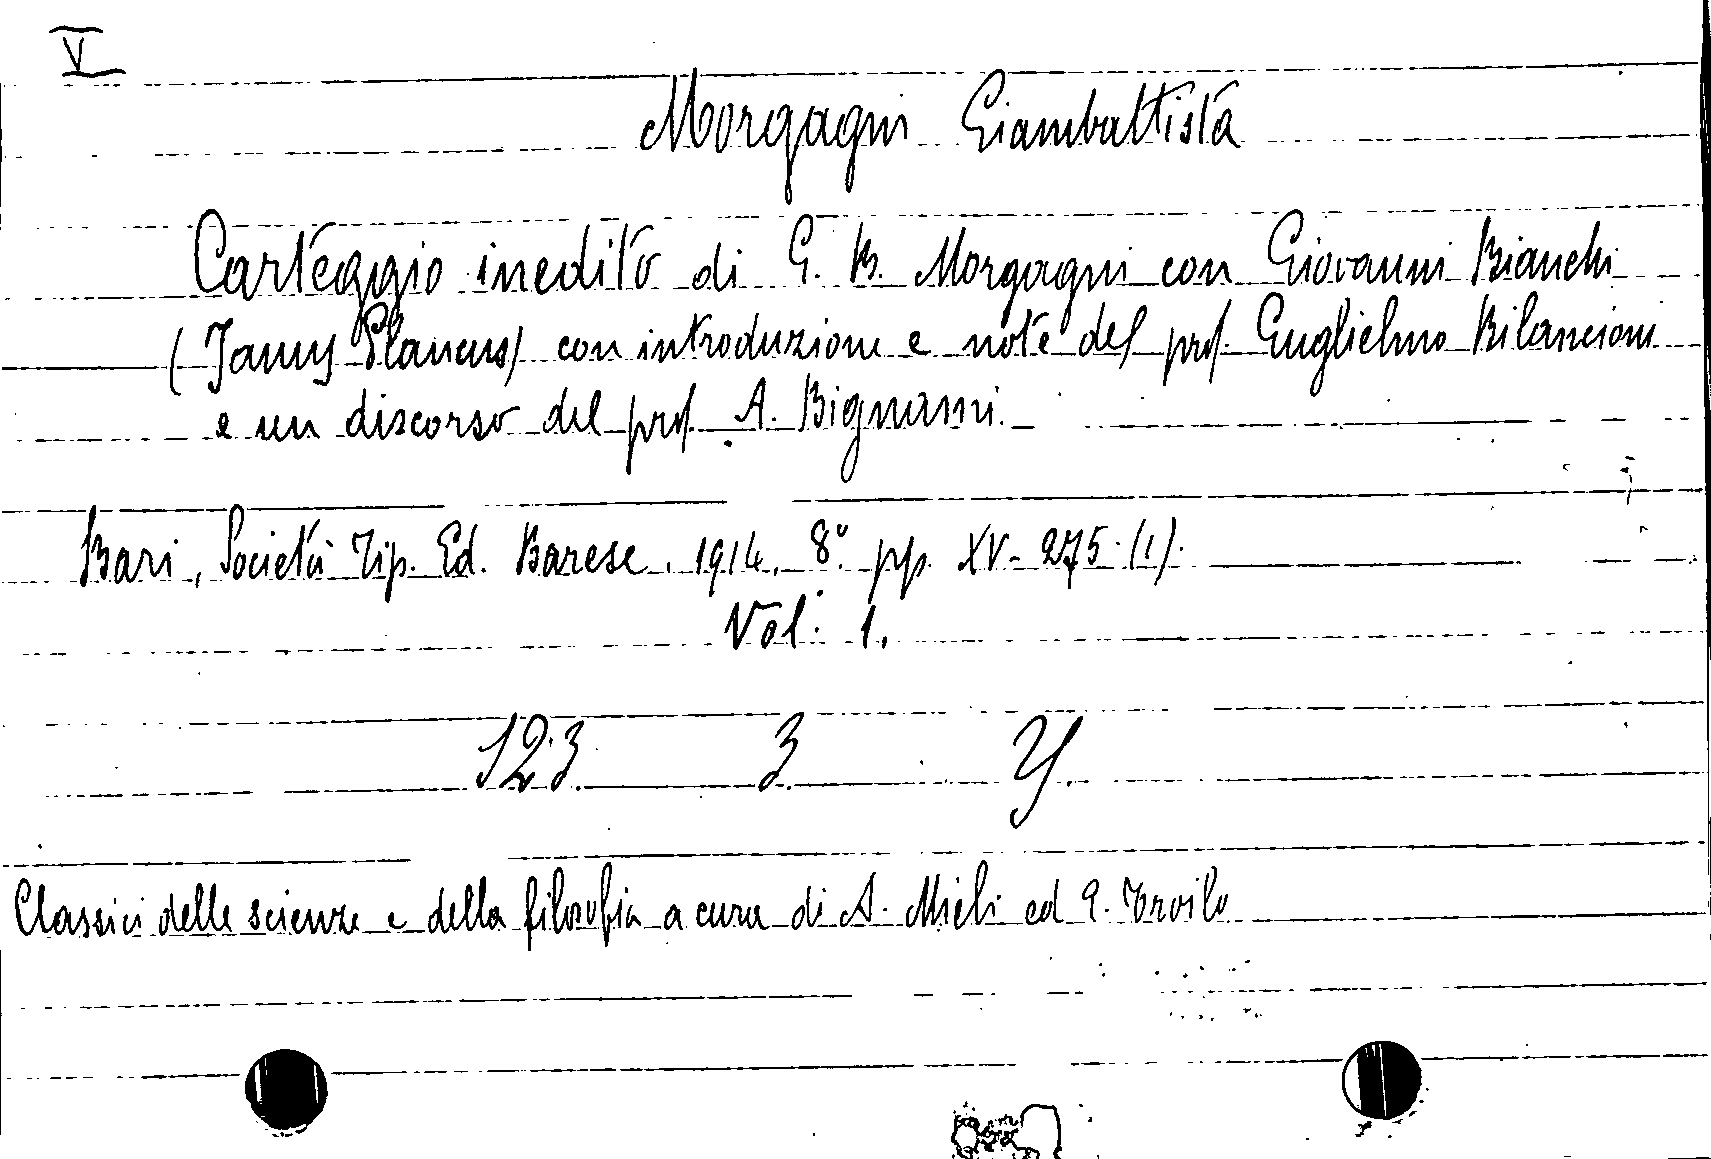 V
Morgagni Giambattista
Carteggio inedito di G. B. Morgagni con Giovanni Bianchi
(Janus Plancus) con introduzione e note del prof. Guglielmo Bilancioni
e un discorso del prof. A. Bignami.
Bari, Società Tip. Ed. Barese. 1914. 8° pp. XV-275-(1).
Vol: 1.
123 3 Y.
Classici delle scienze e della filosofia a cura di A. Mieli ed E. Troilo